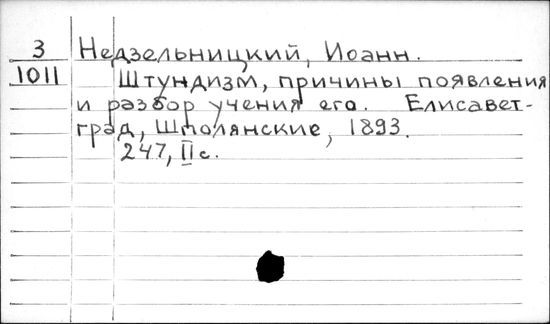 3
1011
Недзельницкий, Иоанн.
Штундизм, причины появления
и разбор учения его. Елисавет-
град, Шполянские, 1893.
247, II с.